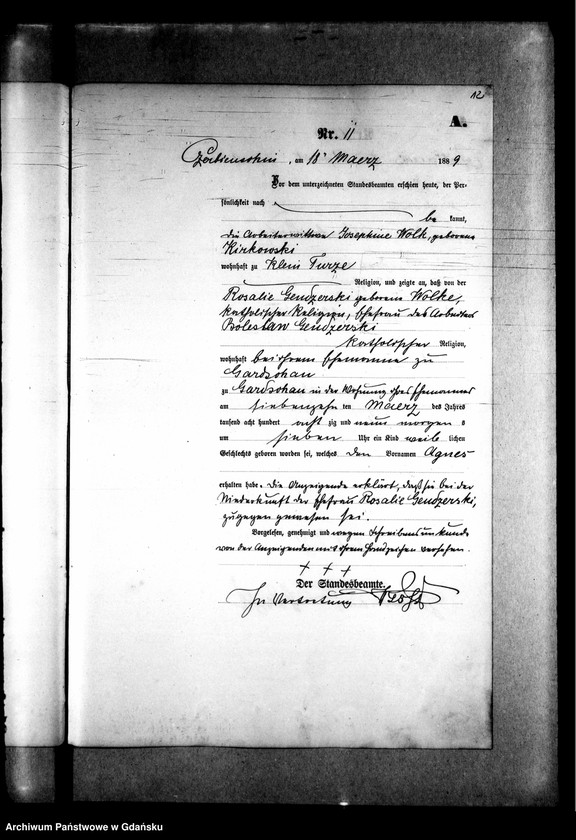 12
A.
Nr. 11
am 18' Maerz 1889
Vor dem unterzeichneten Standesbeamten erschien heute, der Per-
sönlichkeit nach
be kannt,
die Arbeiterwittwe Josephine Wolk, geborene
Kirkowski
wohnhaft zu Klein Turze
Religion, und zeigte an, daß von der
Rosalie Gendzerski geborene Wolke,
katholischer Religion, Ehefrau des Arbeiters
Boleslaw Gendzerski
katholischer Religion,
wohnhaft bei ihrem Ehemanne zu
Gardschau
zu Gardschau in der Wohnung ihres Ehemannes
am siebenzehn ten Maerz des Jahres
tausend acht hundert acht zig und neun morgen s
um sieben Uhr ein Kind weib lichen
Geschlechts geboren worden sei, welches den Vornamen Agnes
erhalten habe. Die Anzeigende erklärt, daß sie bei der
Niederkunft der Ehefrau Rosalie Gendzerski,
zugegen gewesen sei.
Vorgelesen, genehmigt und wegen Schreibensunkunde
von der Anzeigenden mit ihrem Handzeichen versehen.
+ + +
Der Standesbeamte.
In Vertretung
Archiwum Państwowe w Gdańsku